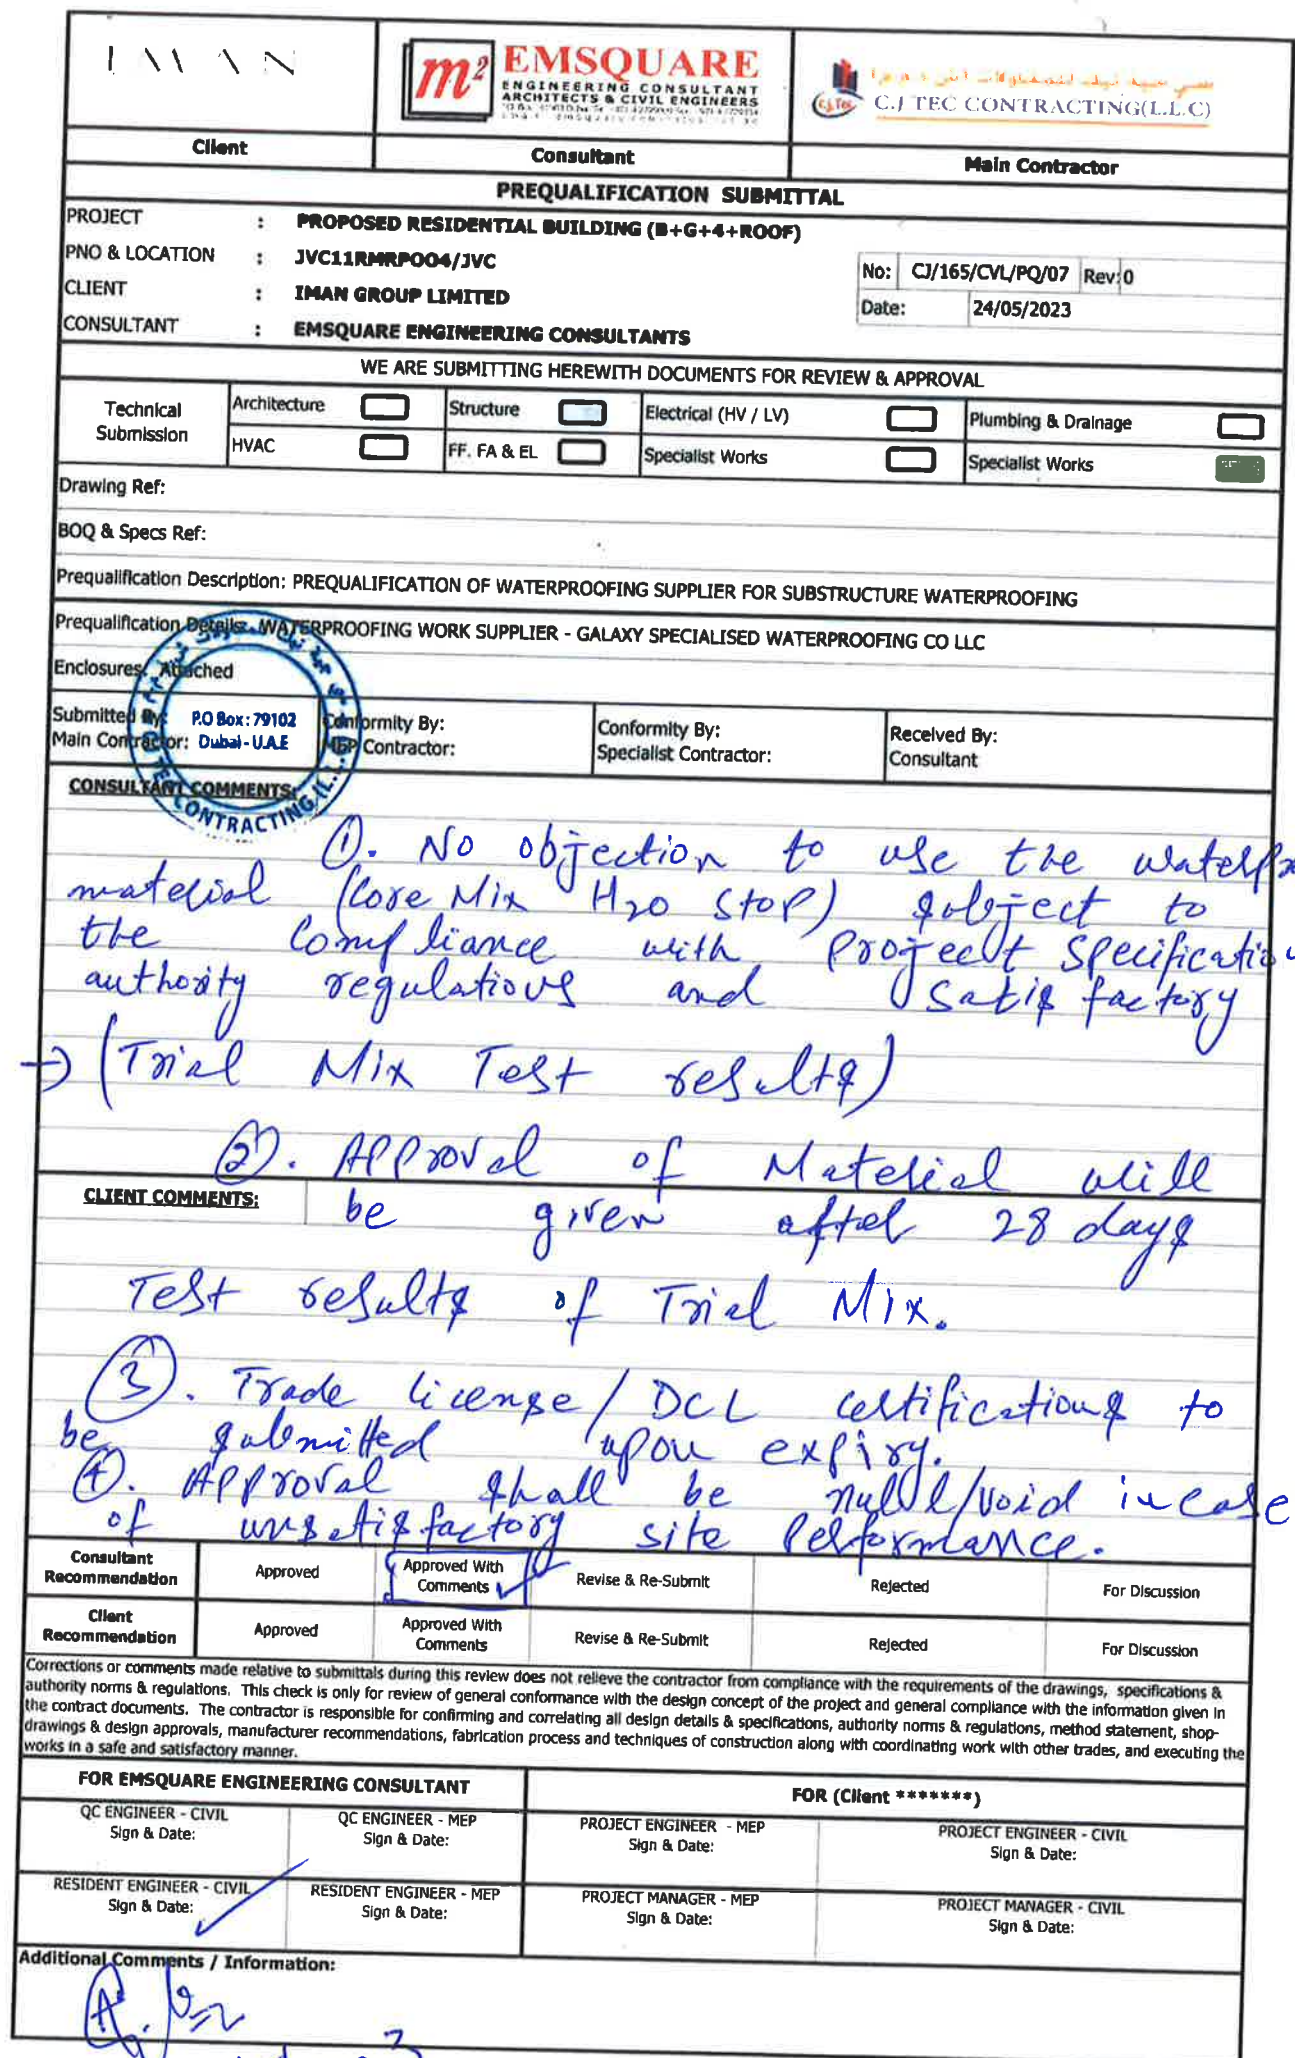 IMAN
m²
EMSQUARE
ENGINEERING CONSULTANT
ARCHITECTS & CIVIL ENGINEERS
C.J.Tec
C.J TEC CONTRACTING(L.L.C)
Client
Consultant
Main Contractor
PREQUALIFICATION SUBMITTAL
PROJECT : PROPOSED RESIDENTIAL BUILDING (B+G+4+ROOF)
PNO & LOCATION : JVC11RMRPOO4/JVC
No: CJ/165/CVL/PQ/07 Rev:0
CLIENT : IMAN GROUP LIMITED
Date: 24/05/2023
CONSULTANT : EMSQUARE ENGINEERING CONSULTANTS
WE ARE SUBMITTING HEREWITH DOCUMENTS FOR REVIEW & APPROVAL
Technical Submission
Architecture
Structure
Electrical (HV / LV)
Plumbing & Drainage
HVAC
FF. FA & EL
Specialist Works
Specialist Works
Drawing Ref:
BOQ & Specs Ref:
Prequalification Description: PREQUALIFICATION OF WATERPROOFING SUPPLIER FOR SUBSTRUCTURE WATERPROOFING
Prequalification Details: WATERPROOFING WORK SUPPLIER - GALAXY SPECIALISED WATERPROOFING CO LLC
Enclosures: Attached
Submitted By:
Main Contractor:
P.O Box: 79102
Dubai - U.A.E
TEC CONTRACTING (L.L.C)
Conformity By:
MEP Contractor:
Conformity By:
Specialist Contractor:
Received By:
Consultant
CONSULTANT COMMENTS:
①. No objection to use the
material (Core Mix H20 Stop) subject to
the compliance with project specification
authority regulations and satisfactory
→ (Trial Mix Test results)
②. Approval of Material will
CLIENT COMMENTS:
be given after 28 days
Test results of Trial Mix.
③. Trade license/DCL certifications to
be submitted upon expiry.
④. Approval shall be null/void incase
of unsatisfactory site performance.
Consultant Recommendation
Approved
Approved With Comments
Revise & Re-Submit
Rejected
For Discussion
Client Recommendation
Approved
Approved With Comments
Revise & Re-Submit
Rejected
For Discussion
Corrections or comments made relative to submittals during this review does not relieve the contractor from compliance with the requirements of the drawings, specifications &
authority norms & regulations. This check is only for review of general conformance with the design concept of the project and general compliance with the information given in
the contract documents. The contractor is responsible for confirming and correlating all design details & specifications, authority norms & regulations, method statement, shop-
drawings & design approvals, manufacturer recommendations, fabrication process and techniques of construction along with coordinating work with other trades, and executing the
works in a safe and satisfactory manner.
FOR EMSQUARE ENGINEERING CONSULTANT
FOR (Client *******)
QC ENGINEER - CIVIL
Sign & Date:
QC ENGINEER - MEP
Sign & Date:
PROJECT ENGINEER - MEP
Sign & Date:
PROJECT ENGINEER - CIVIL
Sign & Date:
RESIDENT ENGINEER - CIVIL
Sign & Date:
RESIDENT ENGINEER - MEP
Sign & Date:
PROJECT MANAGER - MEP
Sign & Date:
PROJECT MANAGER - CIVIL
Sign & Date:
Additional Comments / Information: